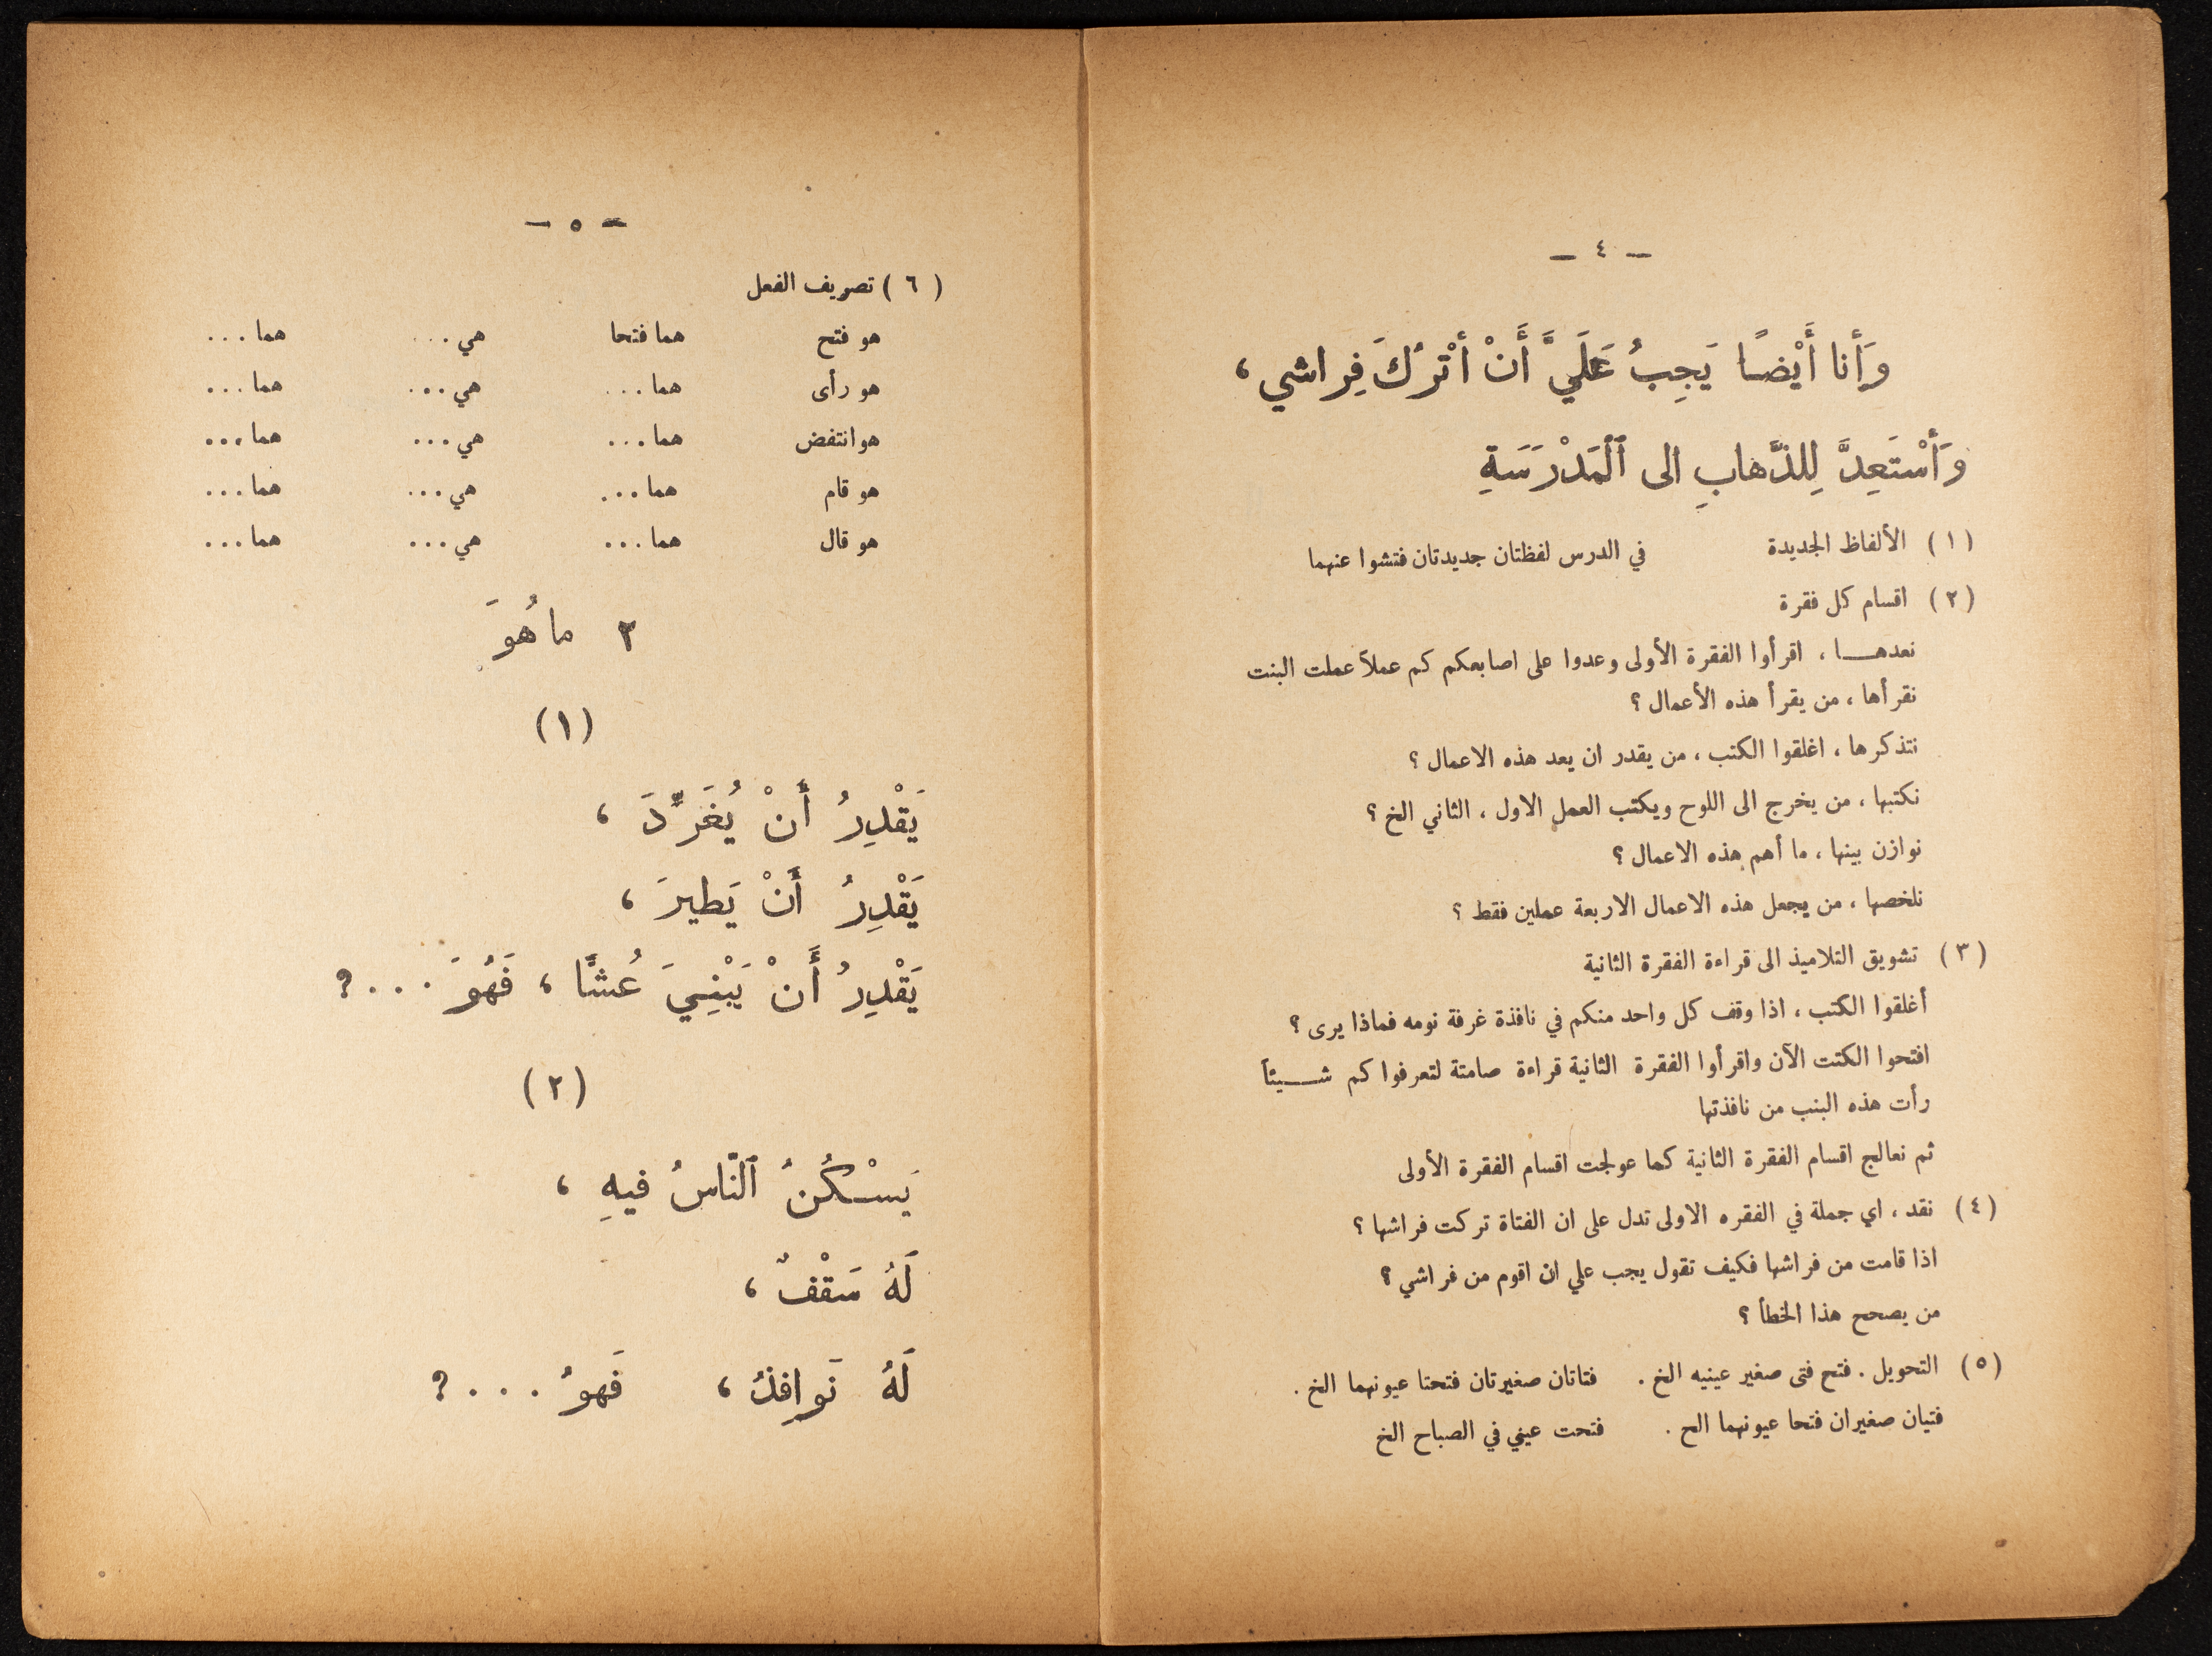 — ٤ —
وَأَنا أَيْضًا يَجِبُ عَلَيَّ أَنْ أَتْرُكَ فِراشي ،
وَأَسْتَعِدَّ لِلذَّهابِ الى ٱلْمَدْرَسَةِ
( ١ ) الألفاظ الجديدة في الدرس لفظتان جديدتان فتشوا عنهما
( ٢ ) اقسام كل فقرة
نعدهـــا ، اقرأوا الفقرة الأولى وعدوا على اصابعكم كم عملاً عملت البنت
نقرأها ، من يقرأ هذه الأعمال ؟
نتذكرها ، اغلقوا الكتب ، من يقدر ان يعد هذه الاعمال ؟
نكتبها ، من يخرج الى اللوح ويكتب العمل الاول ، الثاني الخ ؟
نوازن بينها ، ما أهم هذه الاعمال ؟
نلخصها ، من يجعل هذه الاعمال الاربعة عملين فقط ؟
( ٣ ) تشويق التلاميذ الى قراءة الفقرة الثانية
أغلقوا الكتب ، اذا وقف كل واحد منكم في نافذة غرفة نومه فماذا يرى ؟
افتحوا الكتت الآن واقرأوا الفقرة الثانية قراءة صامتة لتعرفوا كم شـــيئاً
رأت هذه البنب من نافذتها
ثم نعالج اقسام الفقرة الثانية كما عولجت اقسام الفقرة الأولى
( ٤ ) نقد ، اي جملة في الفقره الاولى تدل على ان الفتاة تركت فراشها ؟
اذا قامت من فراشها فكيف تقول يجب علي ان اقوم من فراشي ؟
من يصحح هذا الخطأ ؟
( ٥ ) التحويل . فتح فتى صغير عينيه الخ . فتاتان صغيرتان فتحتا عيونهما الخ .
فتيان صغيران فتحا عيونهما الح . فتحت عيني في الصباح الخ
— ٥ —
( ٦ ) تصريف الفعل
هو فتح هما فتحا هي ... هما ...
هو رأى هما ... هي ... هما ...
هو انتفض هما ... هي ... هما ...
هو قام هما ... هي ... هما ...
هو قال هما ... هي ... هما ...
٢ ما هُوَ
( ١ )
يَقْدِرُ أَنْ يُغَرِّدَ ،
يَقْدِرُ أَنْ يَطيرَ ،
يَقْدِرُ أَنْ يَبْنِيَ عُشًّا ، فَهُوَ . . . ؟
( ٢ )
يَسْكُنُ ٱلنّاسُ فيهِ ،
لَهُ سَقْفٌ ،
لَهُ نَوافِذُ ، فَهوُ . . . ؟